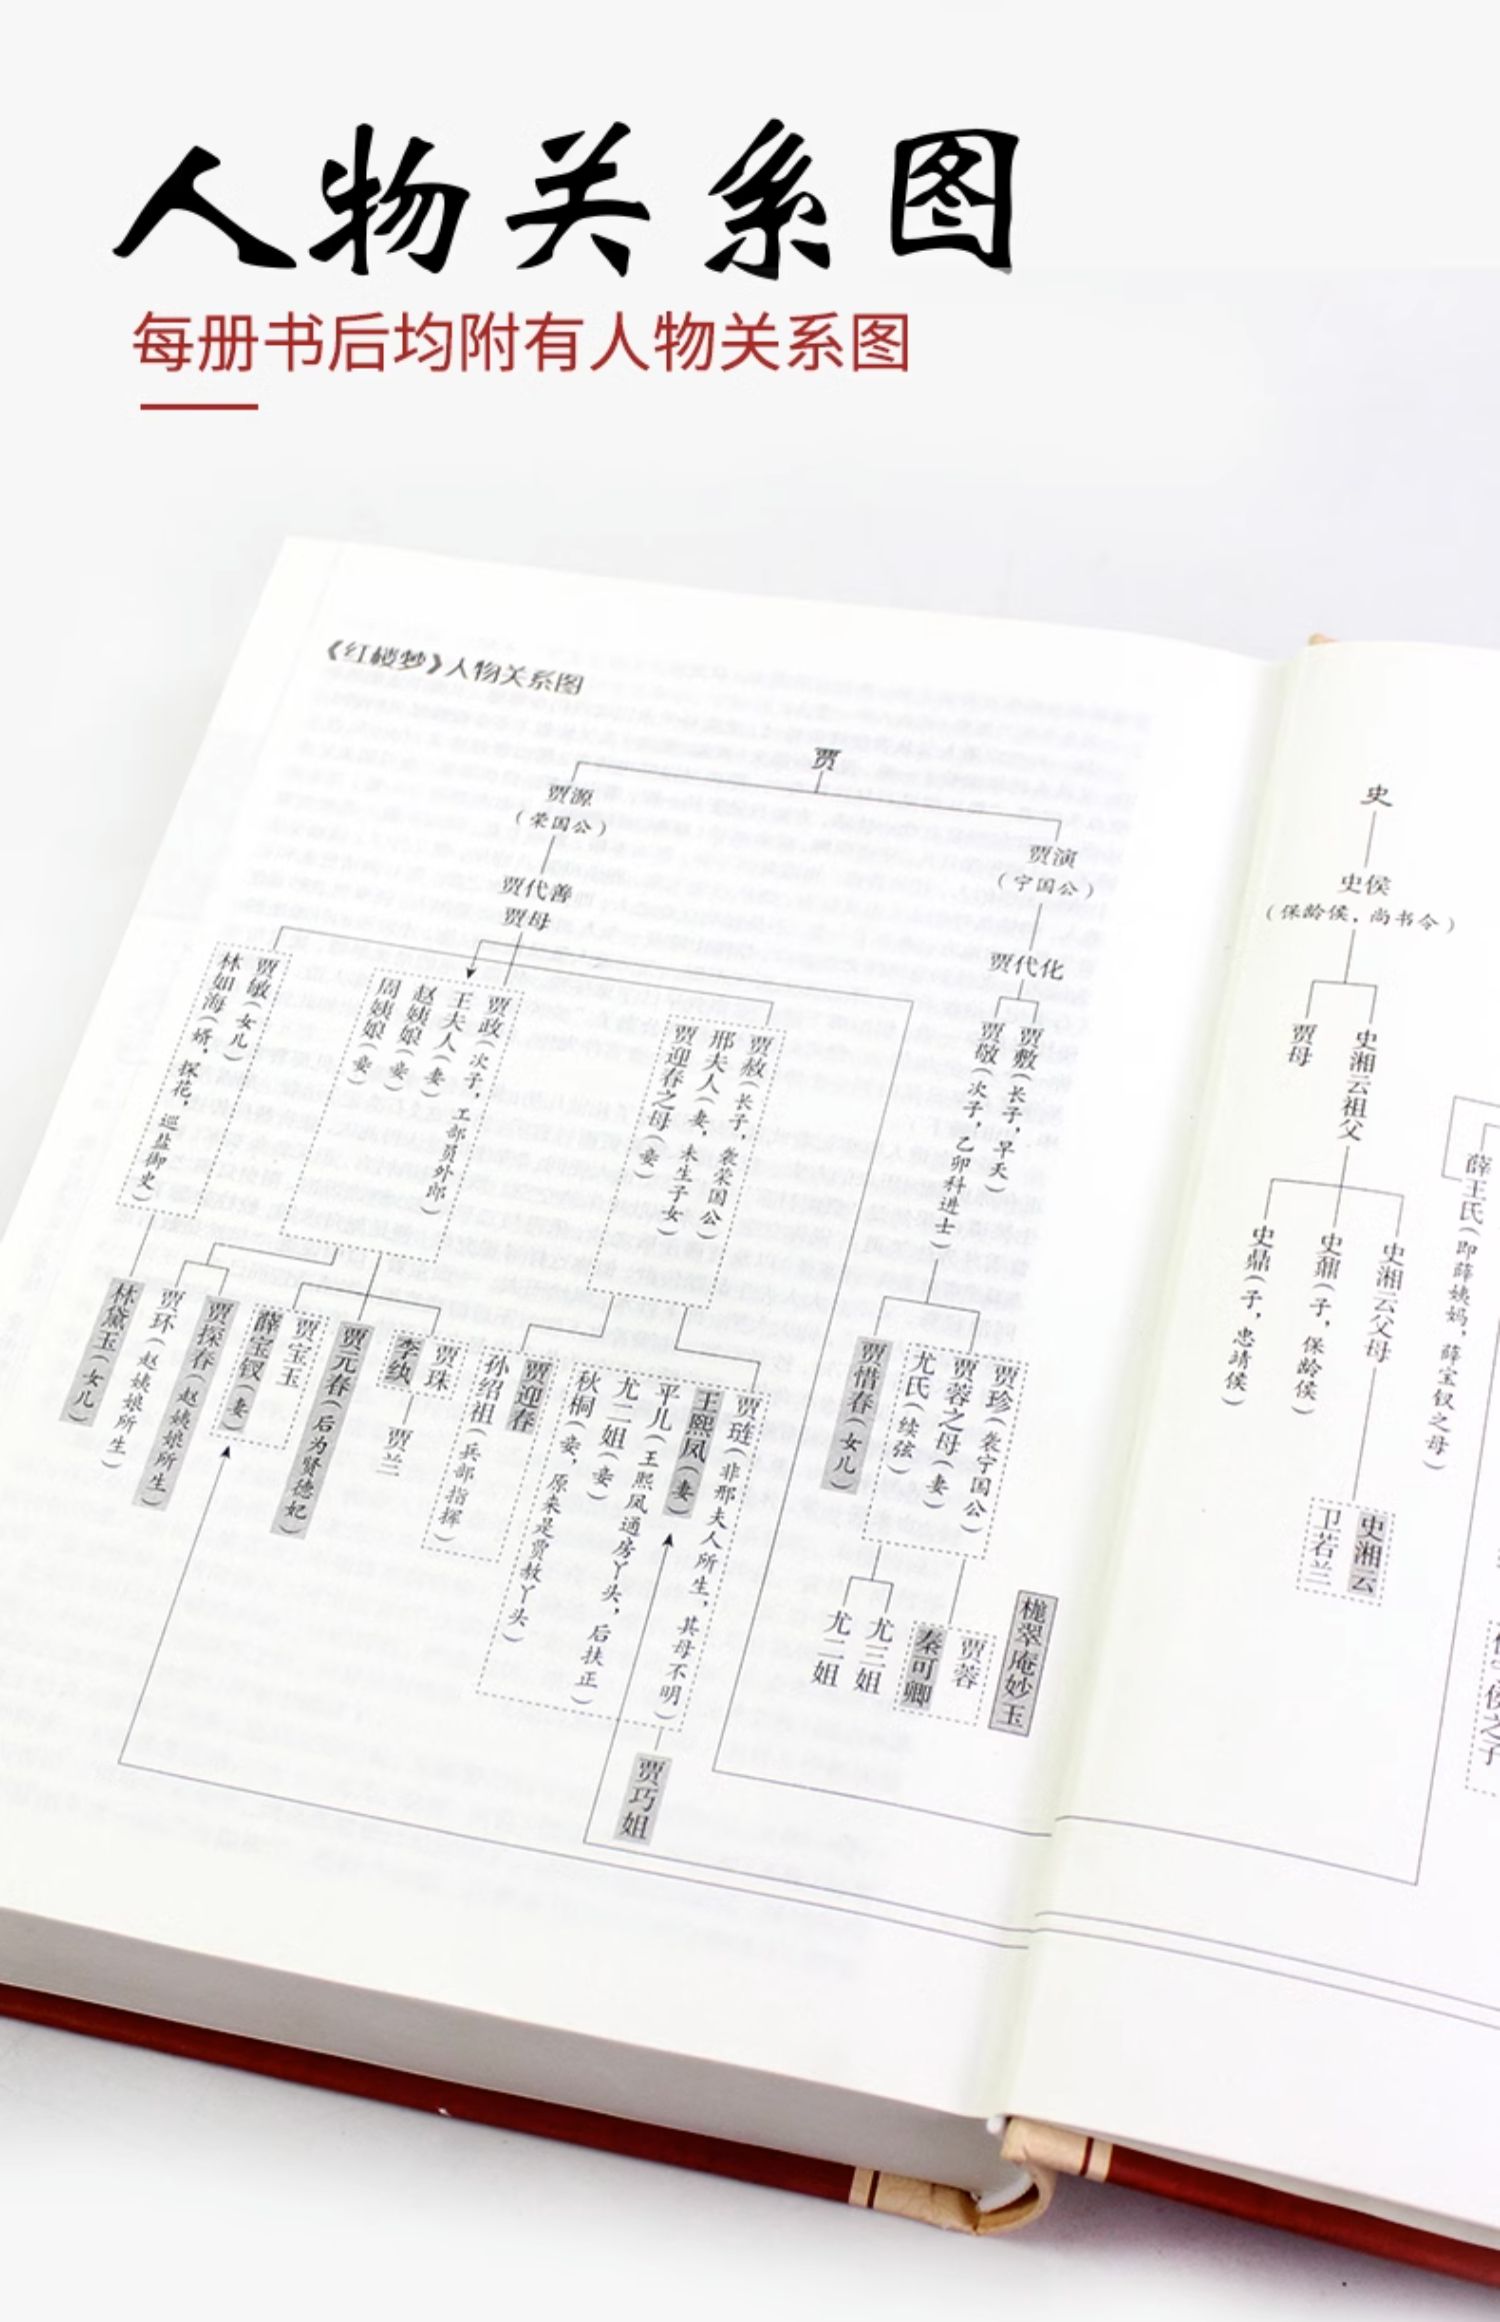 人物关系图
每册书后均附有人物关系图
《红楼梦》人物关系图
贾
贾源
(荣国公)
贾演
(宁国公)
贾代善
贾母
贾代化
贾敏(女儿)
林如海(婿，探花，巡盐御史)
贾政(次子，工部员外郎)
王夫人(妻)
赵姨娘(妾)
周姨娘(妾)
贾赦(长子，袭荣国公)
邢夫人(妻，未生子女)
贾迎春之母(妾)
贾敷(长子，早夭)
贾敬(次子，乙卯科进士)
林黛玉(女儿)
贾环(赵姨娘所生)
贾探春(赵姨娘所生)
贾宝玉
薛宝钗(妻)
贾元春(后为贤德妃)
贾珠
李纨
贾兰
贾迎春
孙绍祖(兵部指挥)
贾琏(非邢夫人所生，其母不明)
王熙凤(妻)
平儿(王熙凤通房丫头，后扶正)
尤二姐(妾)
秋桐(妾，原来是贾赦丫头)
贾巧姐
贾惜春(女儿)
贾珍(袭宁国公)
贾蓉之母(妻)
尤氏(续弦)
尤三姐
尤二姐
贾蓉
秦可卿
栊翠庵妙玉
史
史侯
(保龄侯，尚书令)
贾母
史湘云祖父
史鼎(子，忠靖侯)
史鼐(子，保龄侯)
史湘云父母
史湘云
卫若兰
薛王氏(即薛姨妈，薛宝钗之母)
侯之子